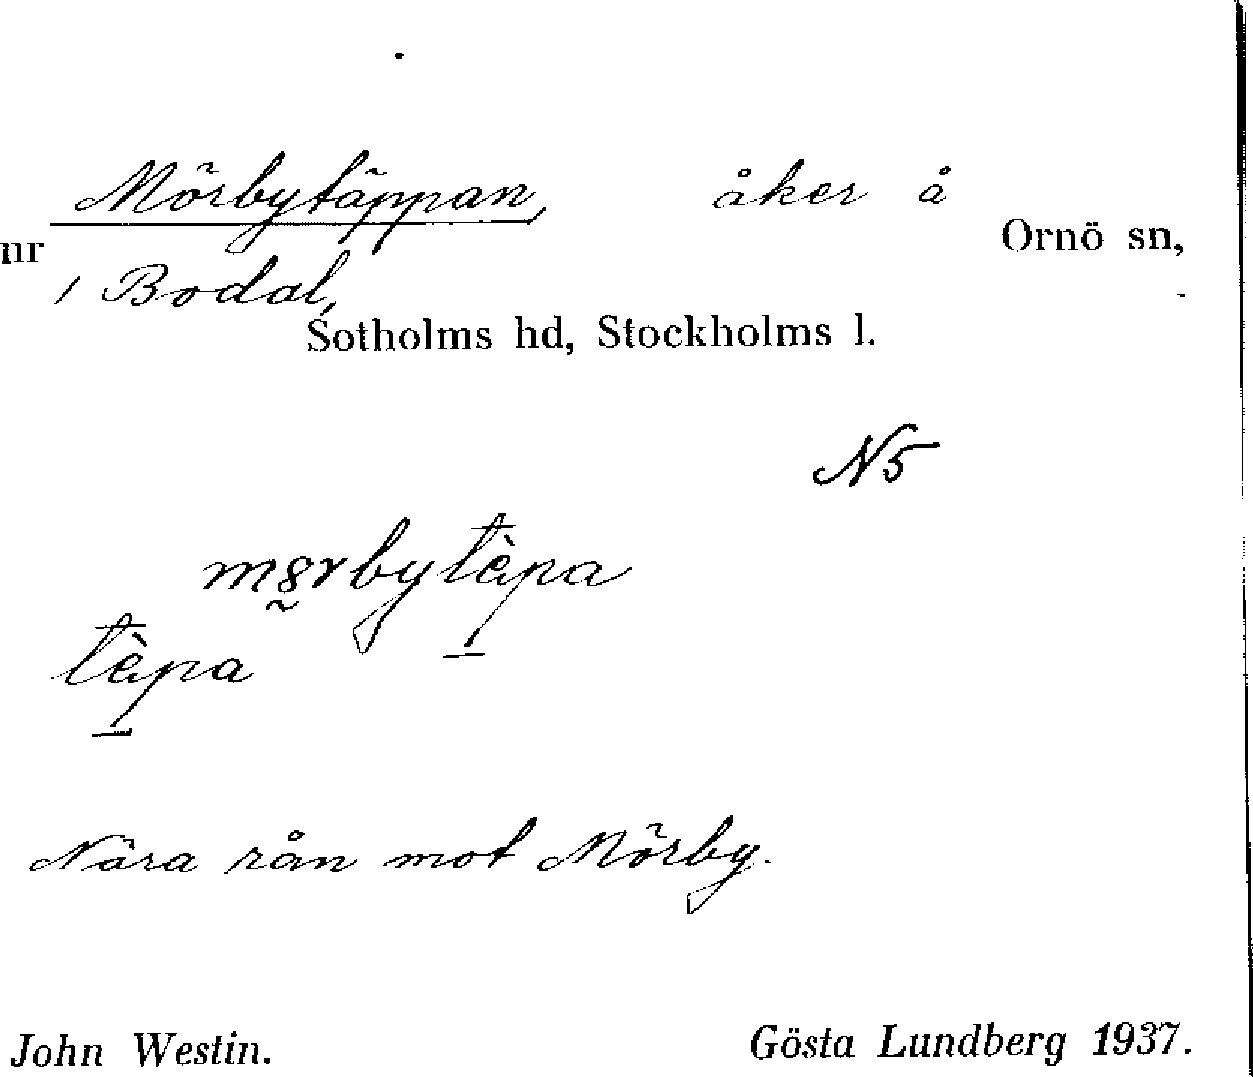 Mörbytäppan, åker å
nr Ornö sn,
1 Bodal,
Sotholms hd, Stockholms l.
N5
tèpa
Nära rån mot Mörby.
John Westin. Gösta Lundberg 1937.